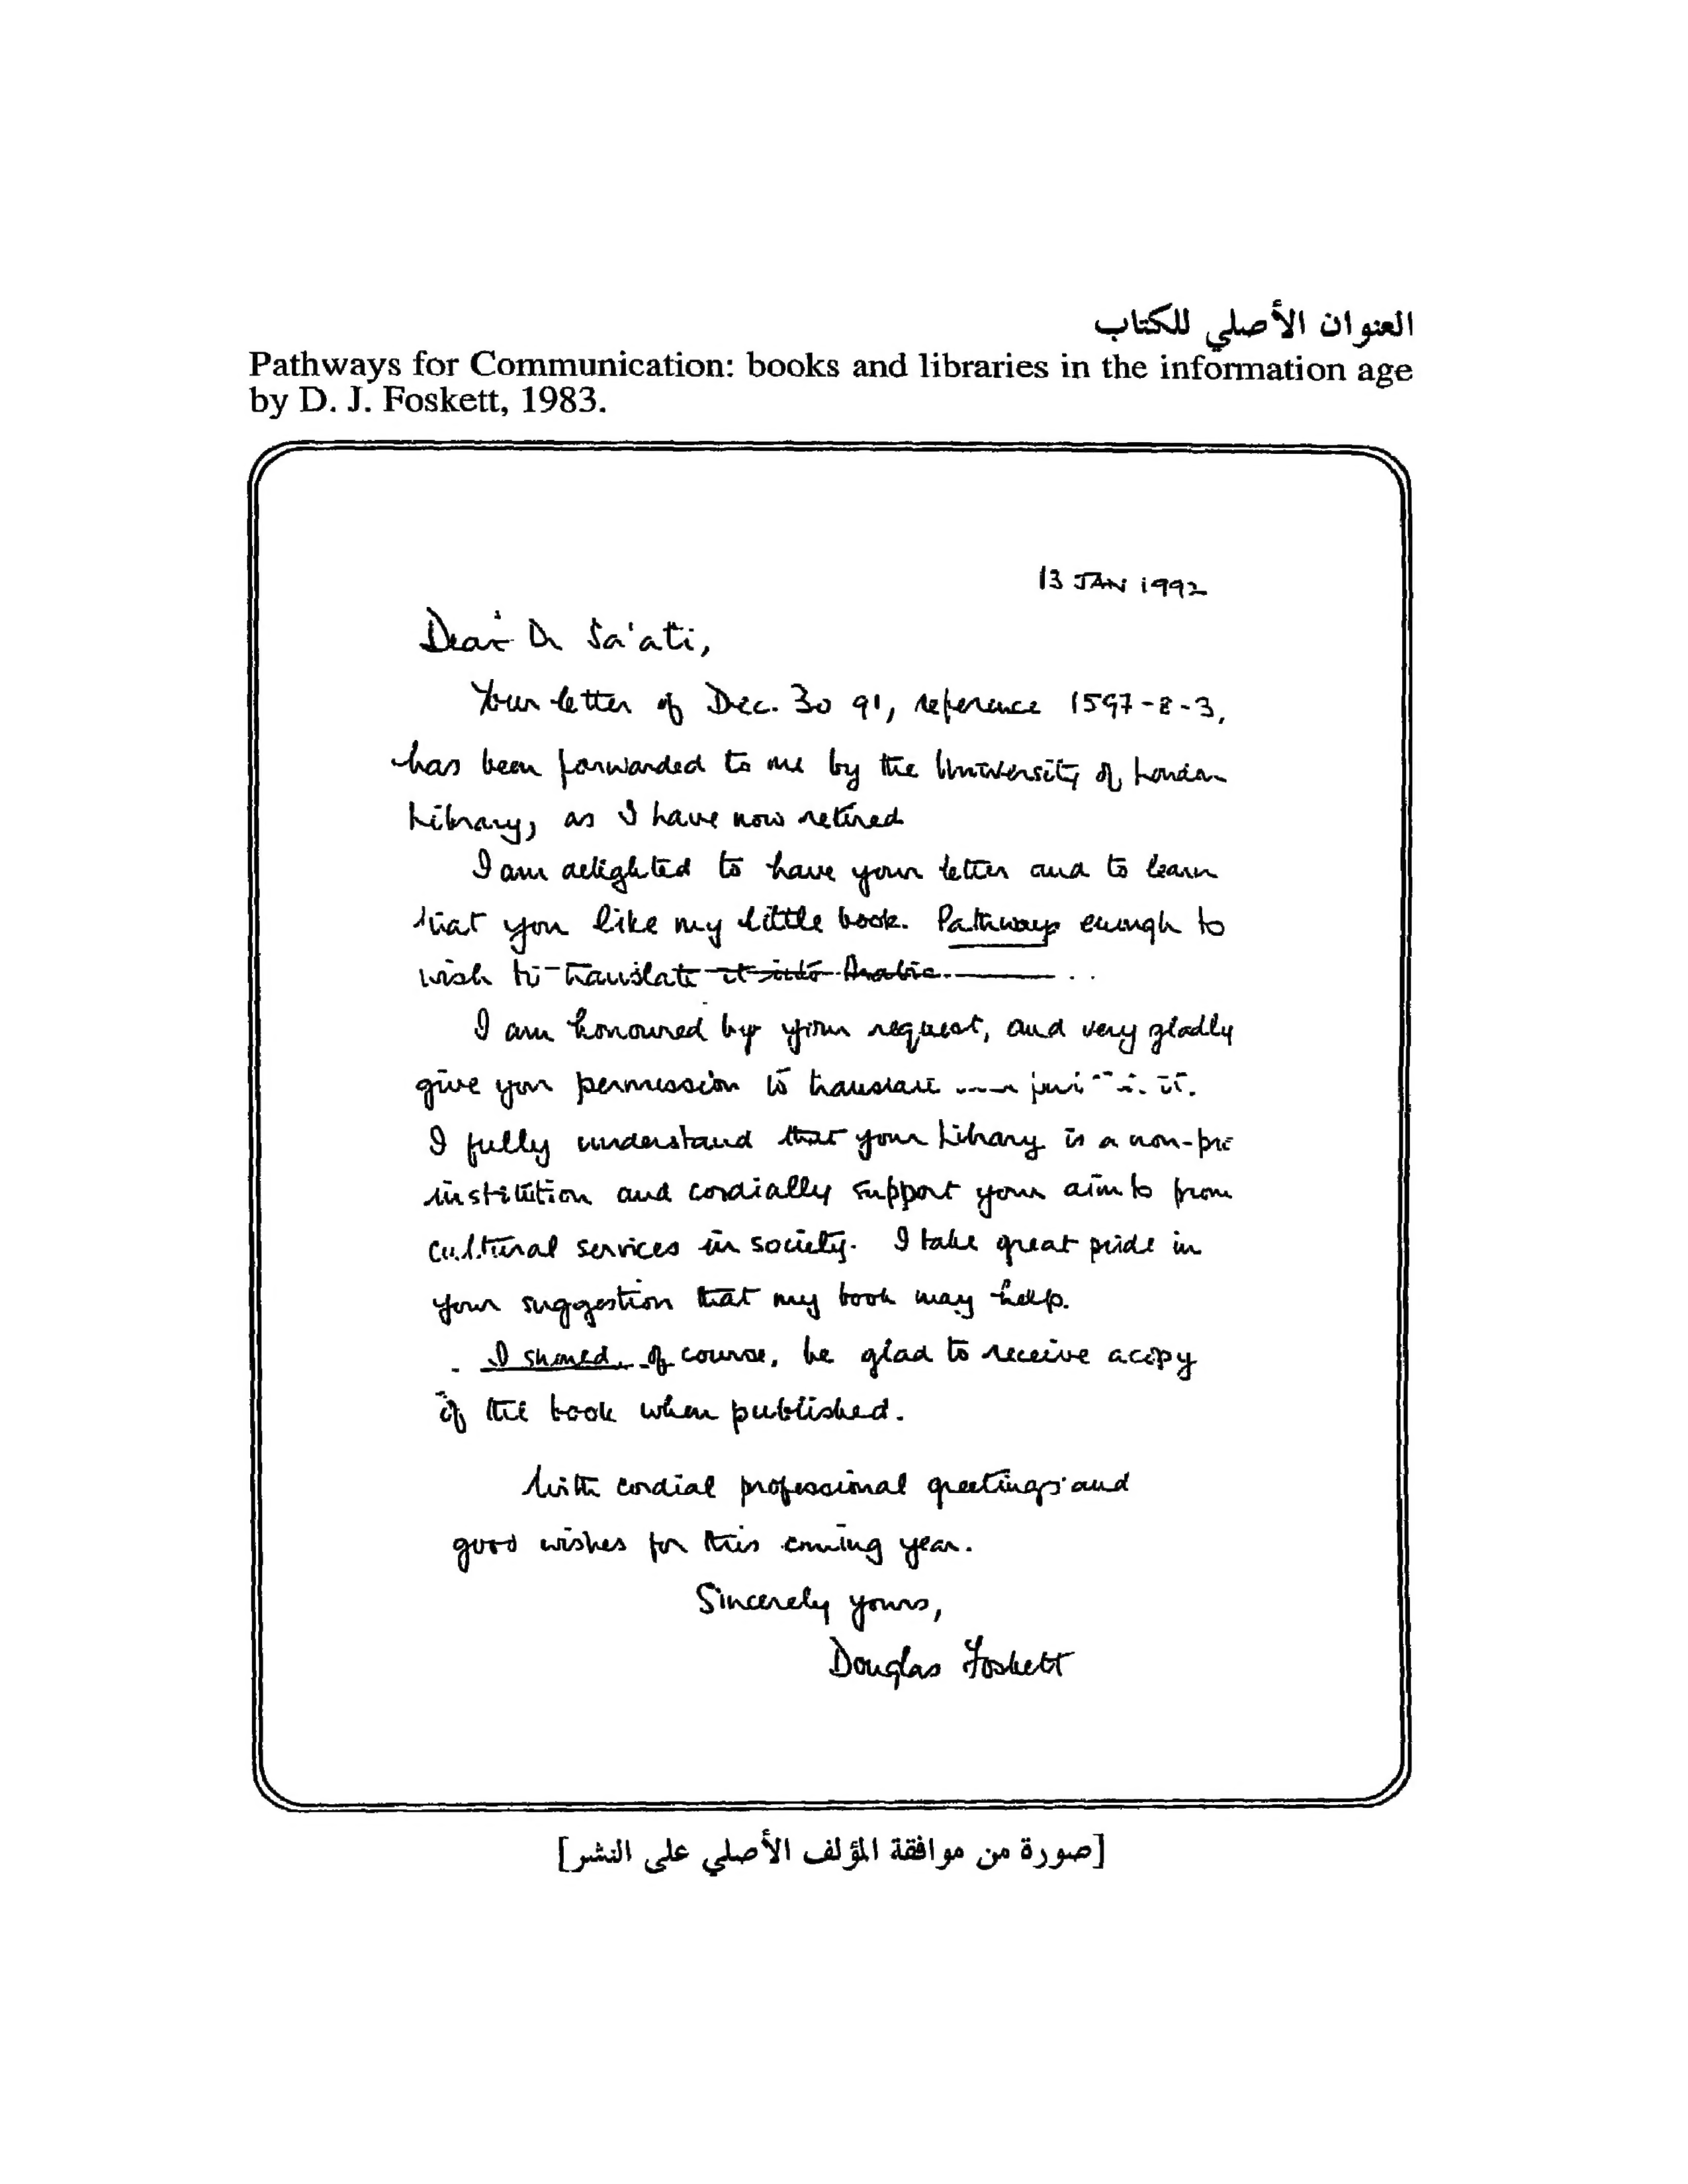 العنوان الأصلي للكتاب
Pathways for Communication: books and libraries in the information age
by D. J. Foskett, 1983.
13 JAN 1992
Dear Dr Sa'ati,
Your letter of Dec. 30 91, reference 1597-8-3,
has been forwarded to me by the University of London
Library, as I have now retired
I am delighted to have your letter and to learn
that you like my little book. Pathways enough to
wish to translate it into Arabic.
I am honoured by your request, and very gladly
give you permission to translate it.
I fully understand that your Library is a non-pr
institution and cordially support your aim to prom
cultural services in society. I take great pride in
your suggestion that my book may help.
I should, of course, be glad to receive a copy
of the book when published.
With cordial professional greetings and
good wishes for this coming year.
Sincerely yours,
Douglas Foskett
[صورة من موافقة المؤلف الأصلي على النشر]